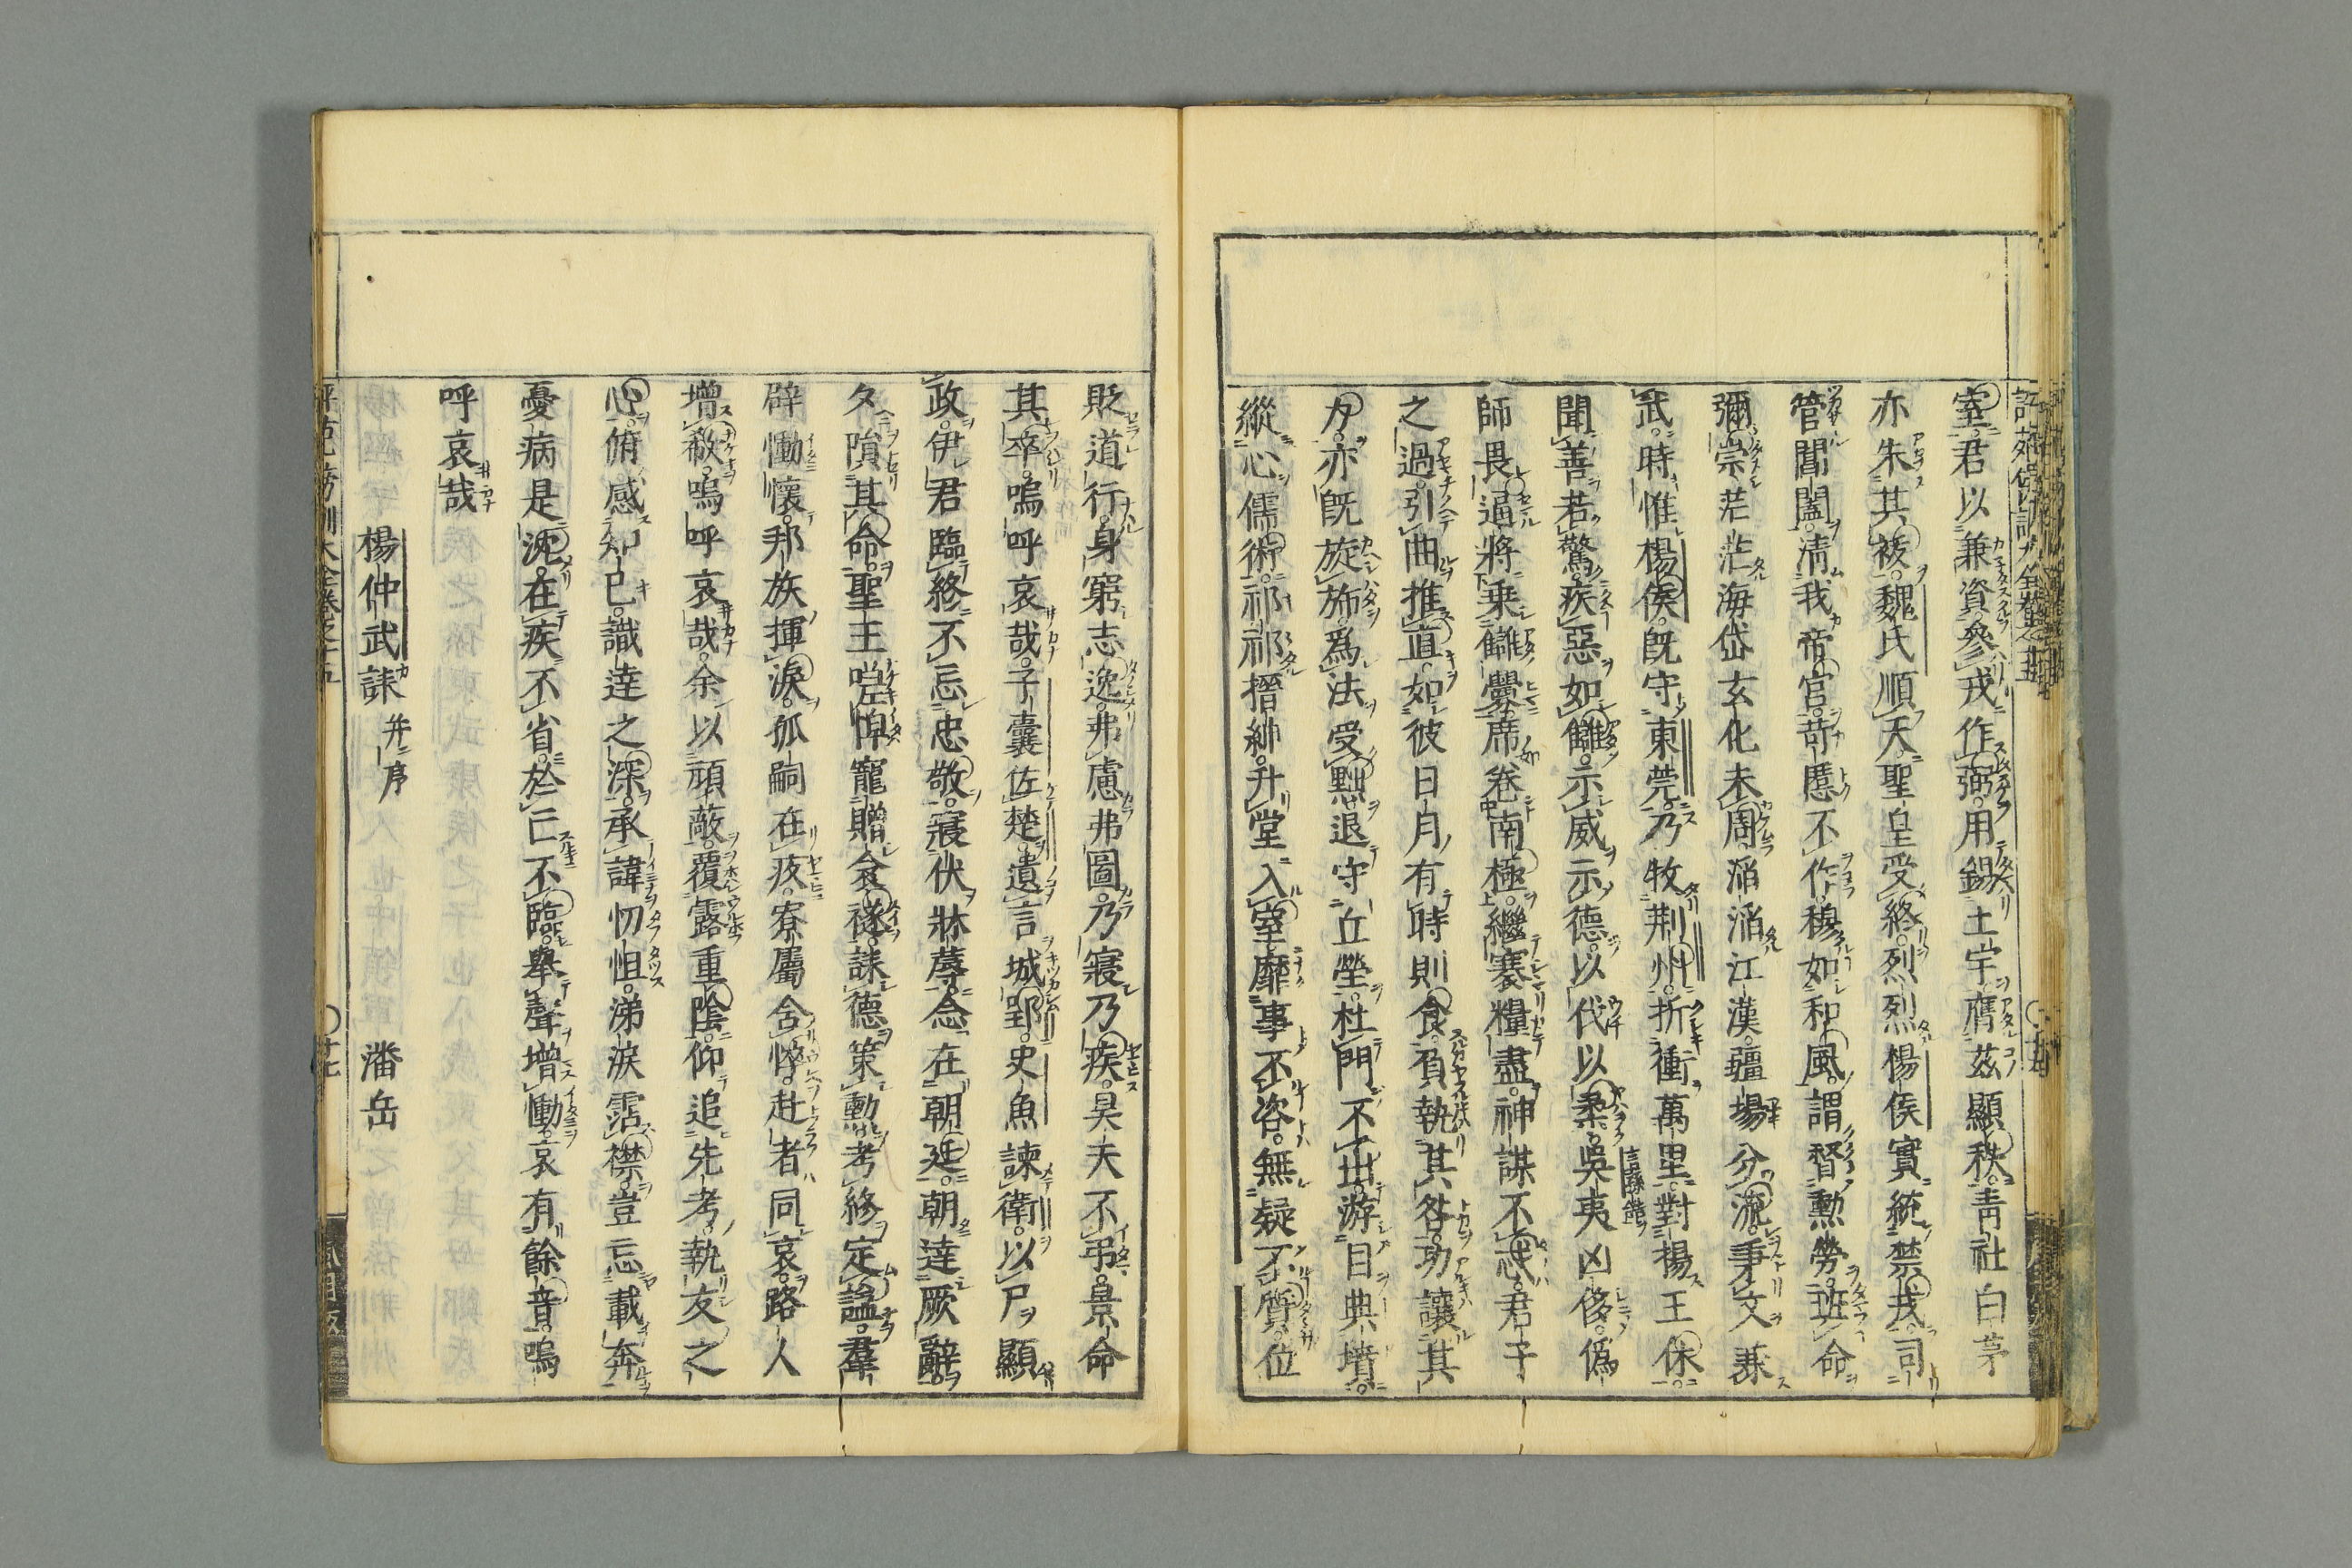 室君以兼資參戎作弼用錫土宇膺茲顯秩青社白茅
亦朱其紱魏氏順天聖皇受終烈烈楊侯實統禁戎司
管閽闔清我帝宮苛慝不作穆如和風謂督勳勞班命
彌崇茫茫海岱玄化未周滔滔江漢疆埸分流秉文兼
武時惟楊侯既守東莞乃牧荊州折衝萬里對揚王休
聞善若驚疾惡如讎示威示德以伐以柔吳夷凶侈偽
師畏逼將乘讎釁席卷南極繼褰糧盡神謀不忒君子
之過引曲推直如彼日月有時則食負執其咎功讓其
力亦既旋旆為法受黜退守丘塋杜門不出游目典墳
縱心儒術祁祁搢紳升堂入室靡事不咨無疑不質位
貶道行身窮志逸弗慮弗圖乃寢乃疾昊天不弔景命
其卒嗚呼哀哉子囊佐楚遺言城郢史魚諫衛以尸顯
政伊君臨終不忘忠敬寢伏牀蓐念在朝廷朝達厥辭
夕隕其命聖王嗟悼寵贈衾襚誄德策勳考終定謚羣
辟慟懷邦族揮淚孤嗣在疚寮屬含悴赴者同哀路人
增欷嗚呼哀哉余以頑蔽覆露重陰仰追先考執友之
心俯感知己識達之深承諱忉怛涕淚霑襟豈忘載奔
憂病是沈在疾不省於亡不臨舉聲增慟哀有餘音嗚
呼哀哉
楊仲武誄并序 潘岳